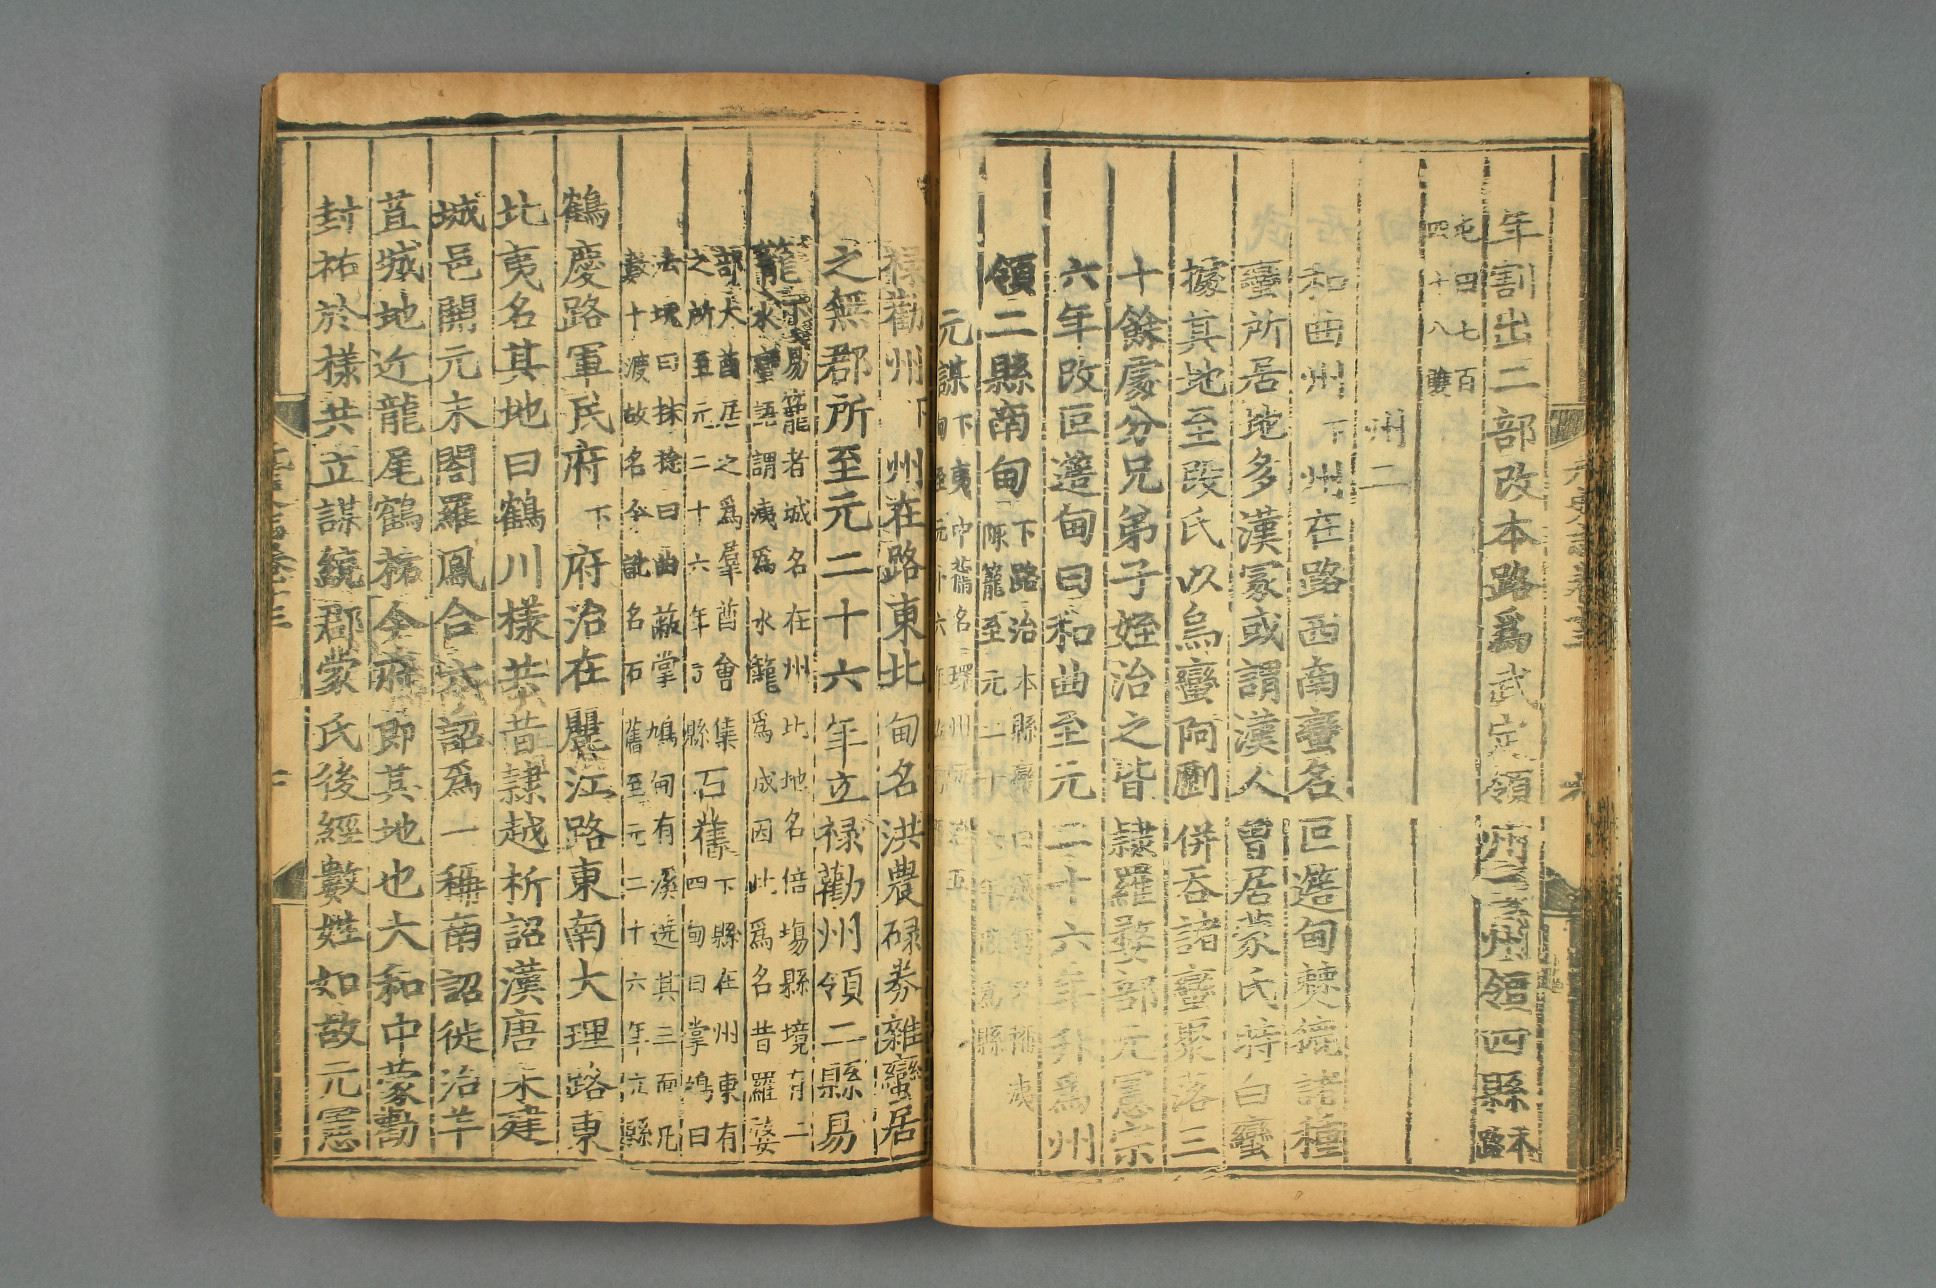 年割出二部改本路爲武定領州二州領四縣本路
屯田七百
四十八雙
州二
和曲州下州在路西南蠻名叵簉甸僰𤞑諸種
蠻所居地多漢冢或謂漢人曾居蒙氏時白蠻
據其地至段氏以烏蠻阿劃併吞諸蠻聚落三
十餘處分兄弟子姪治之皆隸羅婺部元憲宗
六年改叵簉甸曰和曲至元二十六年升爲州
領二縣南甸下路治本縣蠻曰
陬籠至元二十六年
元謀下夷中舊名環州
甸至元十六年
祿勸州下州在路東北甸名洪農碌券雜蠻居
之無郡所至元二十六年立祿勸州領二縣易
籠易籠者城名在州北地名倍塲縣境有二
籠水蠻語謂洟爲水籠爲城因此爲名昔羅婺
部大酋居之爲羣酋會集
之所至元二十六年立縣
石舊下縣在州東有
四甸曰掌鳩曰
法塊曰抹捻曰曲蔽掌鳩甸有溪遶其三面凡
數十渡故名今訛名石舊至元二十六年立縣
鶴慶路軍民府下府治在麗江路東南大理路東
北夷名其地曰鶴川樣共昔隸越析詔漢唐末建
城邑開元末閣羅鳳合六詔爲一稱南詔徙治羊
苴城地近龍尾鶴柘今府即其地也大和中蒙勸
封祐於樣共立謀統郡蒙氏後經數姓如故元憲